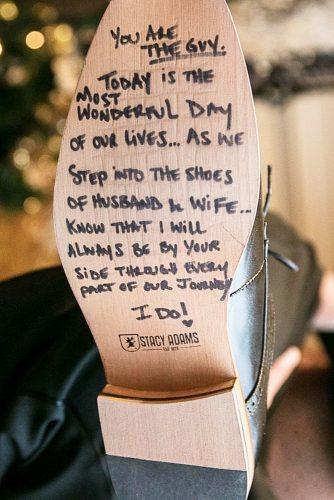 YOU ARE
THE GUY.
TODAY IS THE
MOST
WONDERFUL DAY
OF OUR LIVES... AS WE
STEP INTO THE SHOES
OF HUSBAND & WIFE...
KNOW THAT I WILL
ALWAYS BE BY YOUR
SIDE THROUGH EVERY
PART OF OUR JOURNEY
I DO!
STACY ADAMS
EST. 1875